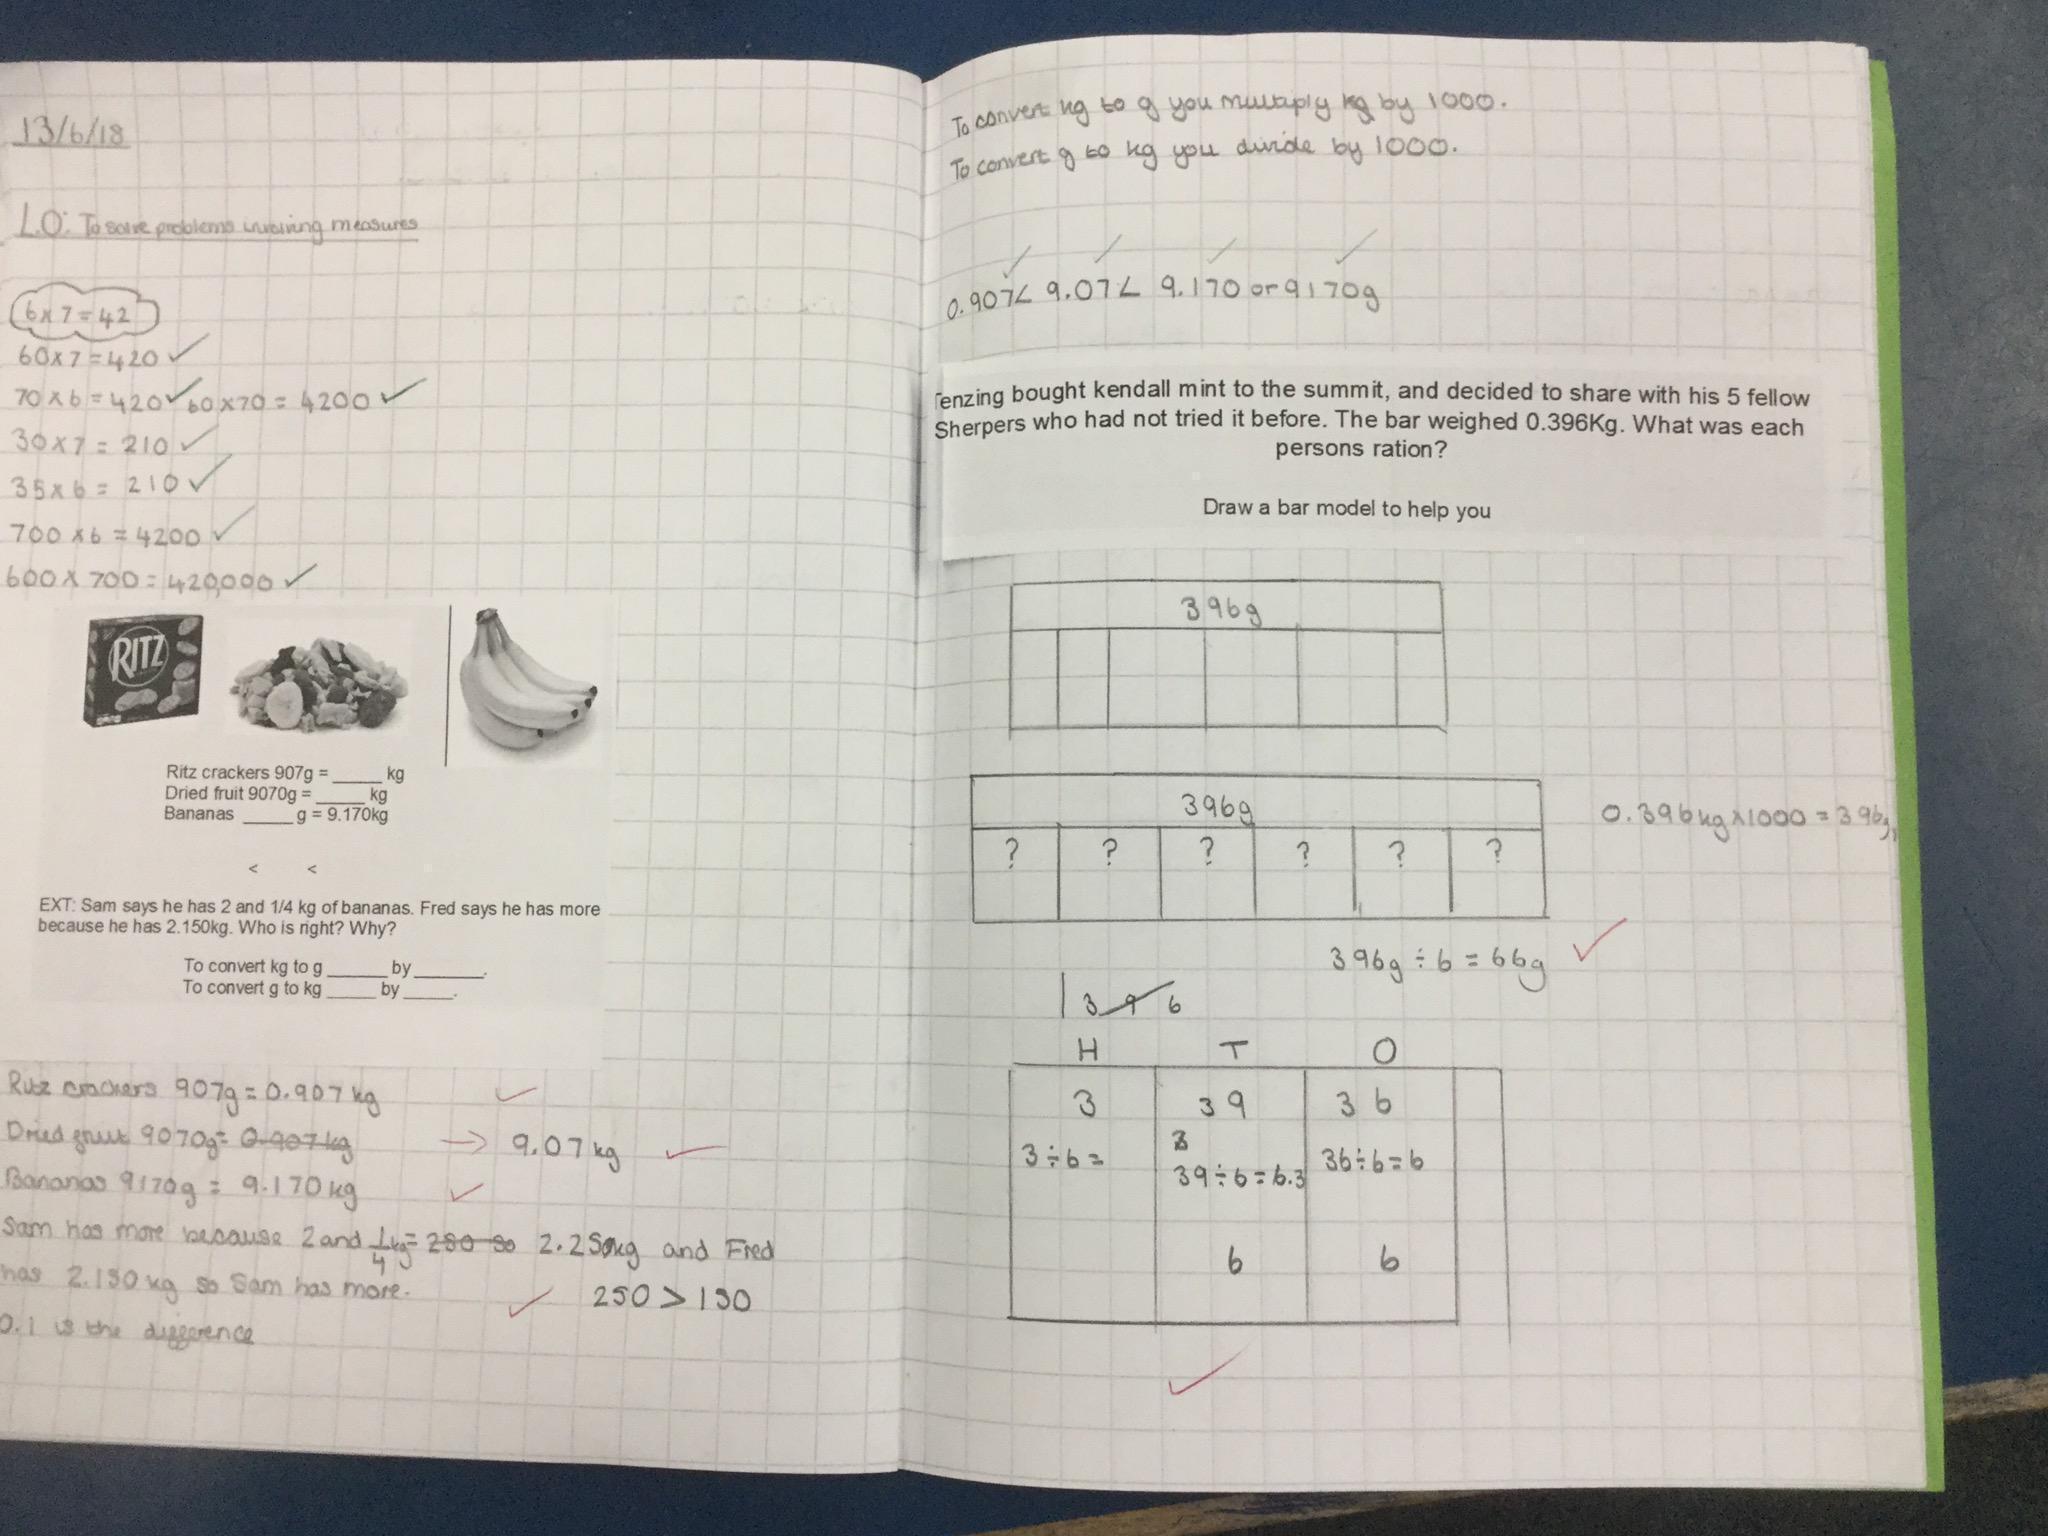 13/6/18
L.O: To solve problems involving measures
6x7=42
60x7=420
70x6=420 60x70=4200
30x7=210
35x6=210
700x6=4200
600x700=420,000
RITZ
Ritz crackers 907g = _____ kg
Dried fruit 9070g = _____ kg
Bananas _____ g = 9.170kg
< <
EXT: Sam says he has 2 and 1/4 kg of bananas. Fred says he has more
because he has 2.150kg. Who is right? Why?
To convert kg to g ______ by _______.
To convert g to kg _____ by _____.
Ritz crackers 907g=0.907kg
Dried fruit 9070g= 0.907kg → 9.07kg
Bananas 9170g = 9.170kg
Sam has more because 2 and 1/4 kg= 250 so 2.250kg and Fred
has 2.150kg so Sam has more.
250 > 150
0.1 is the difference
To convert kg to g you multiply kg by 1000.
To convert g to kg you divide by 1000.
0.907< 9.07< 9.170 or 9170g
Tenzing bought kendall mint to the summit, and decided to share with his 5 fellow
Sherpers who had not tried it before. The bar weighed 0.396Kg. What was each
persons ration?
Draw a bar model to help you
396g
396g
? ? ? ? ? ?
0.396kgx1000=396g
396g÷6=66g
3 9 6
H T O
3 39 36
3÷6= 39÷6=6.3 36÷6=6
6 6